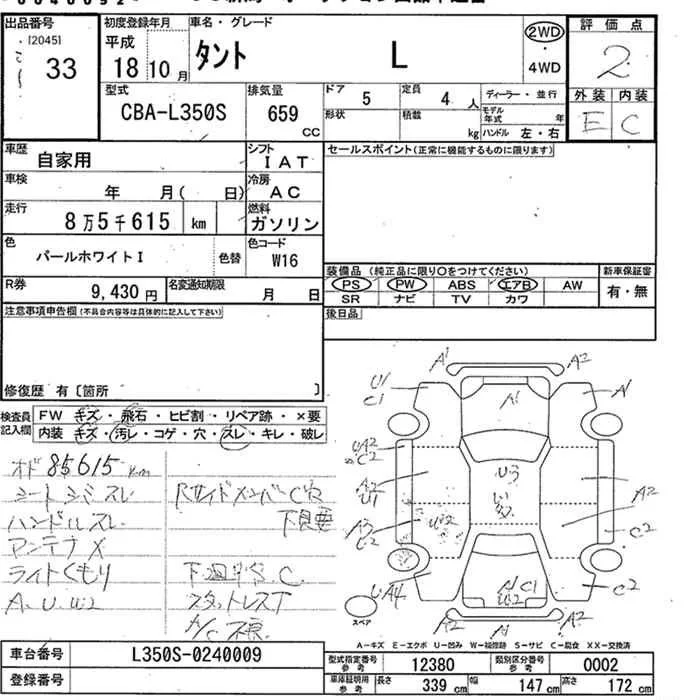 出品番号
[20451
33
初度登録年月
平成
18 10 月
車名・グレード
タント L
2WD
・
4WD
評価点
2
外装 内装
E C
型式
CBA-L350S
排気量
659
CC
ドア
5
定員
4 人
形状
積載
kg
ディーラー・並行
モデル年式 年
ハンドル 左・右
車歴
自家用
シフト
IAT
車検
年 月( 日)
冷房
AC
走行
8万5千615 km
燃料
ガソリン
色
パールホワイトI
色替
色コード
W16
R券
9,430 円
名変通知期限
月 日
セールスポイント(正常に機能するものに限ります)
装備品(純正品に限り○をつけてください)
PS PW ABS エアB AW
SR ナビ TV カワ
新車保証書
有・無
後日品
注意事項申告欄(不具合内容等は具体的に記入して下さい)
修復歴 有〔箇所 〕
検査員記入欄
FW キズ・飛石・ヒビ割・リペア跡・×要
内装 キズ・汚レ・コゲ・穴・スレ・キレ・破レ
オド 85615 km
シートシミスレ
ハンドルスレ
アンテナX
ライトくもり
A.U.W2
RサイドメンバーC
下良要
下廻サS.C.
スタットレスT
A/C不良
A1
A2
U1
C1
A1
A1
UA2
C2
U3
A2
U1
A2
A3
C2
U2
C2
UA4
A1 C1
U2
C2
A2
A1
A2
スペア
A－キズ E－エクボ U－凹み W－補修跡 S－サビ C－腐食 XX－交換済
車台番号
L350S-0240009
登録番号
型式指定番号
参考
12380
類別区分番号
参考
0002
車庫証明用
参考
長さ 339 cm
幅 147 cm
高さ 172 cm